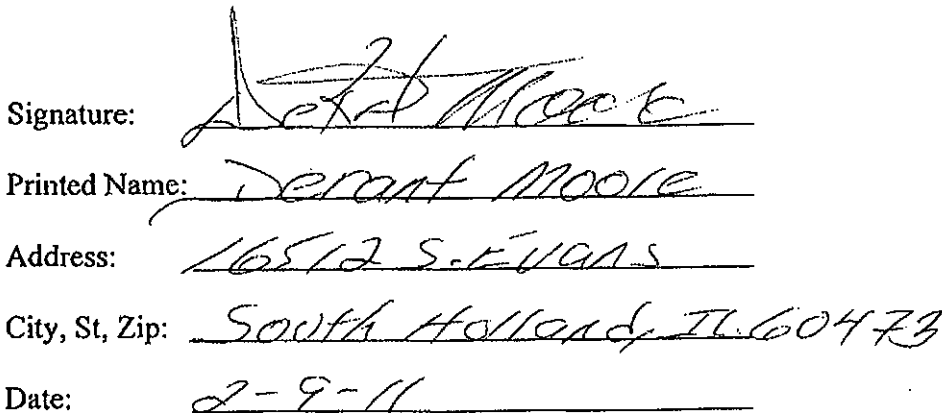 Signature: Moore
Printed Name: Derant Moore
Address: 16512 S. Evans
City, St, Zip: South Holland, IL 60473
Date: 2-9-11